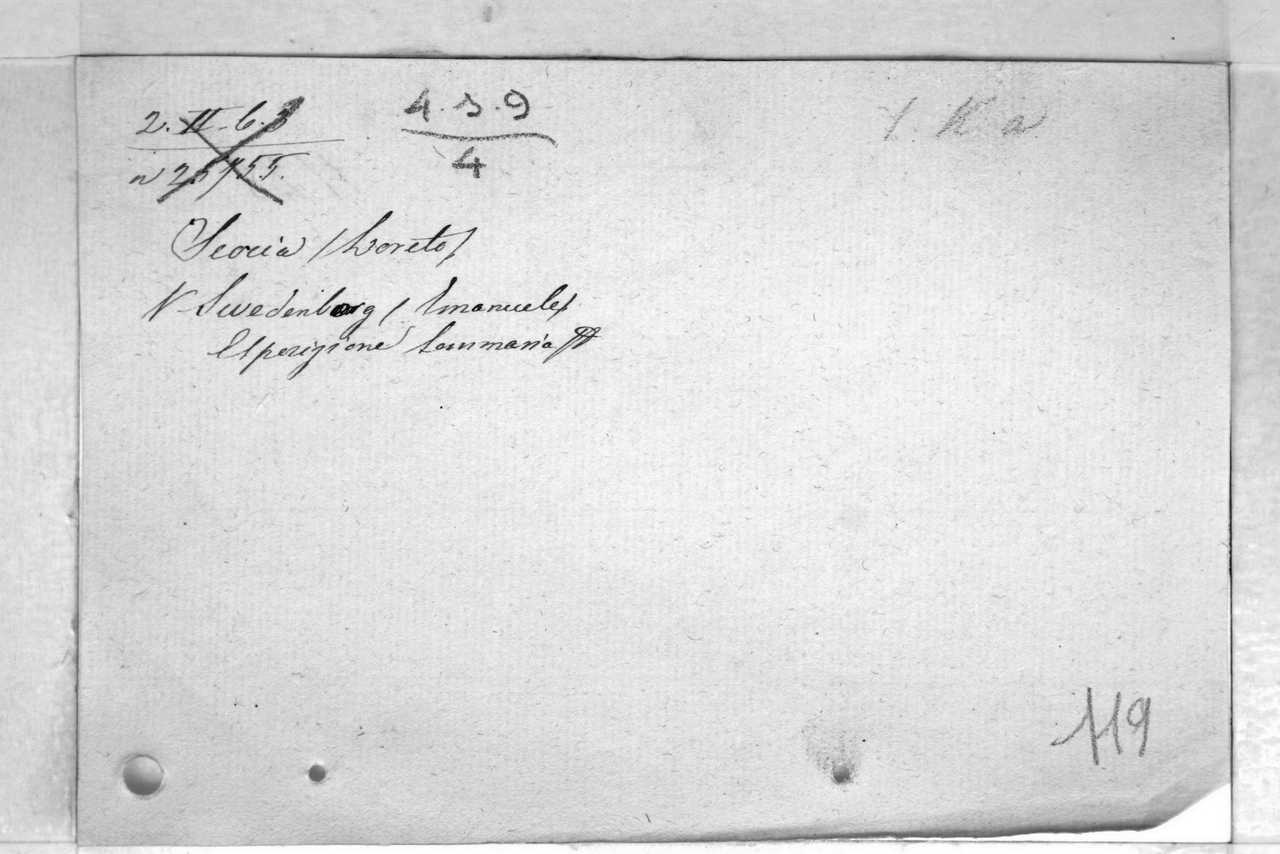 2. II. 6. 3
4. s. 9
n 25755.
4
Scocia (Loreto)
V Swedenborg (Emanuele)
Esposizione Sommaria
119